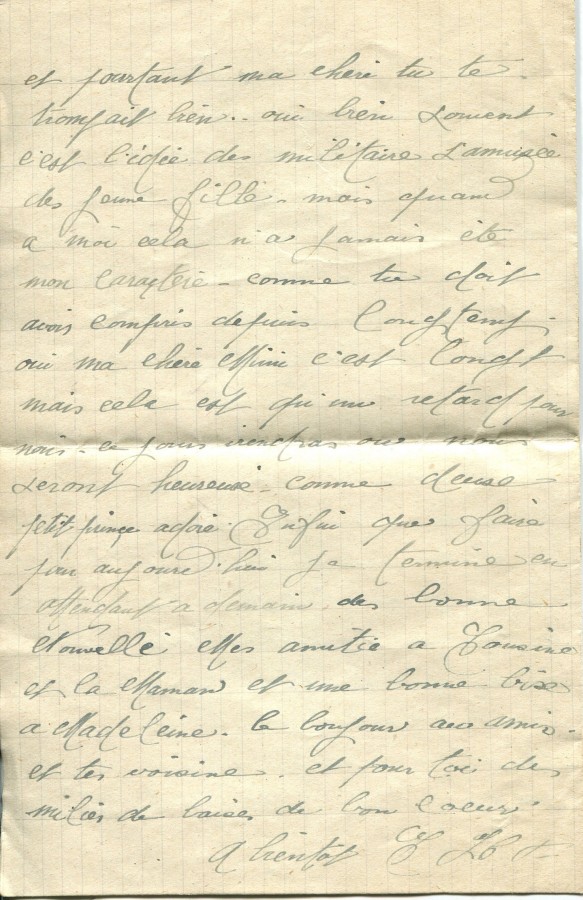 et pourtant ma chère tu te
trompait bien.. oui bien souvent
c'est l'idée des militaire s'amusée
des jeune fille - mais quand
a moi cela n'a jamais été
mon caractère - comme tu doit
avois compris depuis longtemp.
oui ma chère Mimi c'est long
mais cela est qu'un retard pour
nous - ce jours viendras ou nous
seront heureuse - comme deuse
petit prince adoré. Enfin que faire
pour aujourd'hui je termine en
attendant a demain des bonne
Nouvelle Mes amitié a Cousine
et la Maman et une bonne bise
a Madeleine - le bonjour aux amis -
et tes voisine - et pour toi des
milies de baises de bon Coeur
A bientot